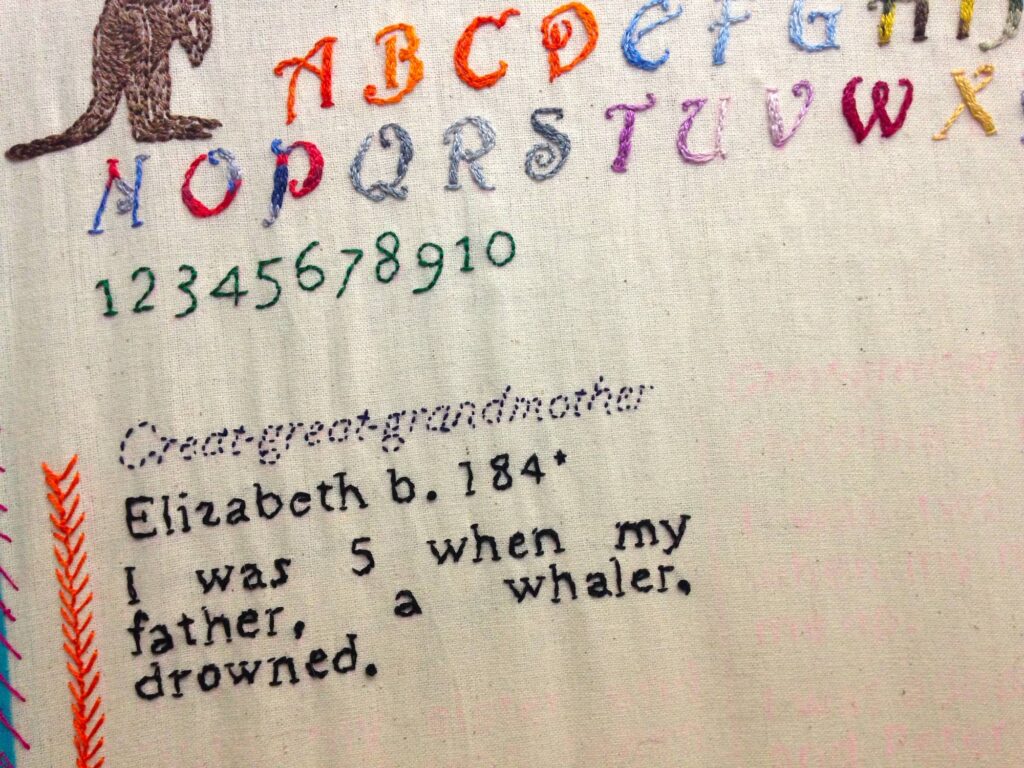 A B C D E F G H I J
N O P Q R S T U V W X
1 2 3 4 5 6 7 8 9 10
Great-great-grandmother
Elizabeth b. 184*
I was 5 when my
father, a whaler,
drowned.